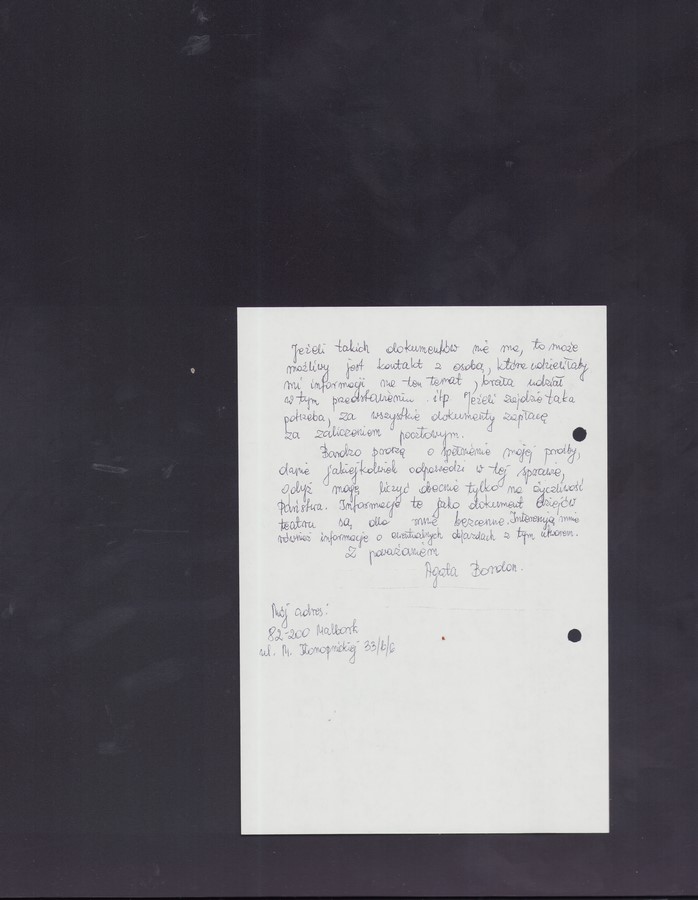 Jeżeli takich dokumentów nie ma, to może
możliwy jest kontakt z osobą, które udzieliłaby
mi informacji na ten temat, brała udział
w tym przedstawieniu itp. Jeżeli zajdzie taka
potrzeba, za wszystkie dokumenty zapłacę
za zaliczeniem pocztowym.
Bardzo proszę o spełnienie mojej prośby,
danie jakiejkolwiek odpowiedzi w tej sprawie,
gdyż mogę liczyć obecnie tylko na życzliwość
Państwa. Informacje te jako dokument dziejów
teatru są dla mnie bezcenne. Interesują mnie
również informacje o ewentualnych objazdach z tym utworem.
Z poważaniem
Agata
Mój adres:
82-200 Malbork
ul. M. Konopnickiej